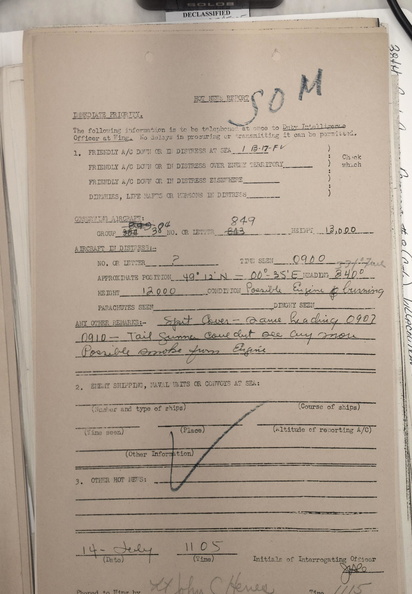 DECLASSIFIED
HOT NEWS REPORT
SOM
IMMEDIATE PRIORITY.
The following information is to be telephoned at once to Duty Intelligence
Officer at Wing. No delays in procuring or transmitting it can be permitted.
1. FRIENDLY A/C DOWN OR IN DISTRESS AT SEA 1 B-17-F )
FRIENDLY A/C DOWN OR IN DISTRESS OVER ENEMY TERRITORY ) Check
FRIENDLY A/C DOWN OR IN DISTRESS ELSEWHERE ) which
DINGHIES, LIFE RAFTS OR PERSONS IN DISTRESS )
OBSERVING AIRCRAFT:
GROUP NO. OR LETTER 849 HEIGHT 13,000
AIRCRAFT IN DISTRESS:-
NO. OR LETTER ? TIME SEEN 0900
APPROXIMATE POSITION 49° 12'N - 00° 35'E HEADING
HEIGHT 12000 CONDITION Possible Engine burning
PARACHUTES SEEN DINGHY SEEN
ANY OTHER REMARKS:- Spit Cover - same heading 0907
0910 - Tail Gunner could not see any more
Possible smoke from Engine
2. ENEMY SHIPPING, NAVAL UNITS OR CONVOYS AT SEA:
(Number and type of ships) (Course of ships)
(Time seen) (Place) (Altitude of reporting A/C)
(Other Information)
3. OTHER HOT NEWS:
14 - July 1105
(Date) (Time) Initials of Interrogating Officer
Phoned to Wing by Lt John C Time 1115